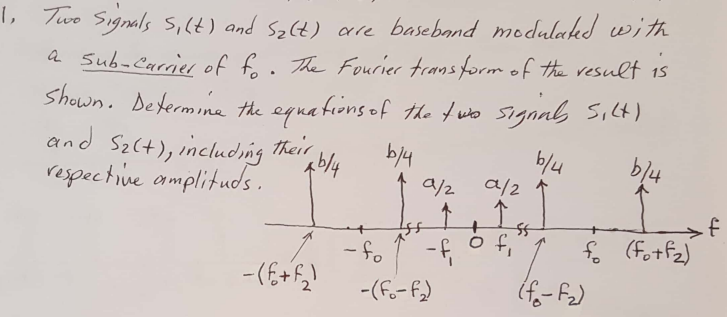 1. Two Signals S₁(t) and S₂(t) are baseband modulated with
a sub-carrier of f₀. The Fourier transform of the result is
shown. Determine the equations of the two signals S₁(t)
and S₂(t), including their
respective amplituds.
b/4 b/4 a/2 a/2 b/4 b/4
-f₀ -f₁ 0 f₁ f₀ (f₀+f₂) f
-(f₀+f₂) -(f₀-f₂) (f₀-f₂)